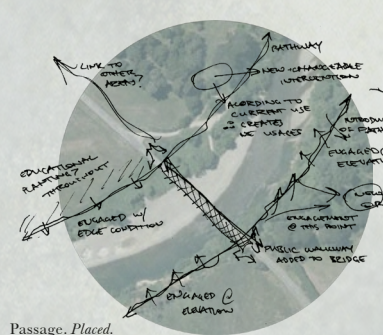 LINK TO
OTHER
AREAS?
PATHWAY
NEW + CHANGEABLE
INTERVENTION
ACORDING TO
CURRENT USE
CREATES
USAGES
INTRODU
OF PATH
ENGAGED
ELEVATI
EDUCATIONAL
PLANTING?
THROUGHOUT
ENGAGED W/
EDGE CONDITION
ENGAGEMENT
@ THIS POINT
PUBLIC WALKWAY
ADDED TO BRIDGE
ENGAGED @
ELEVATION
Passage. Placed.